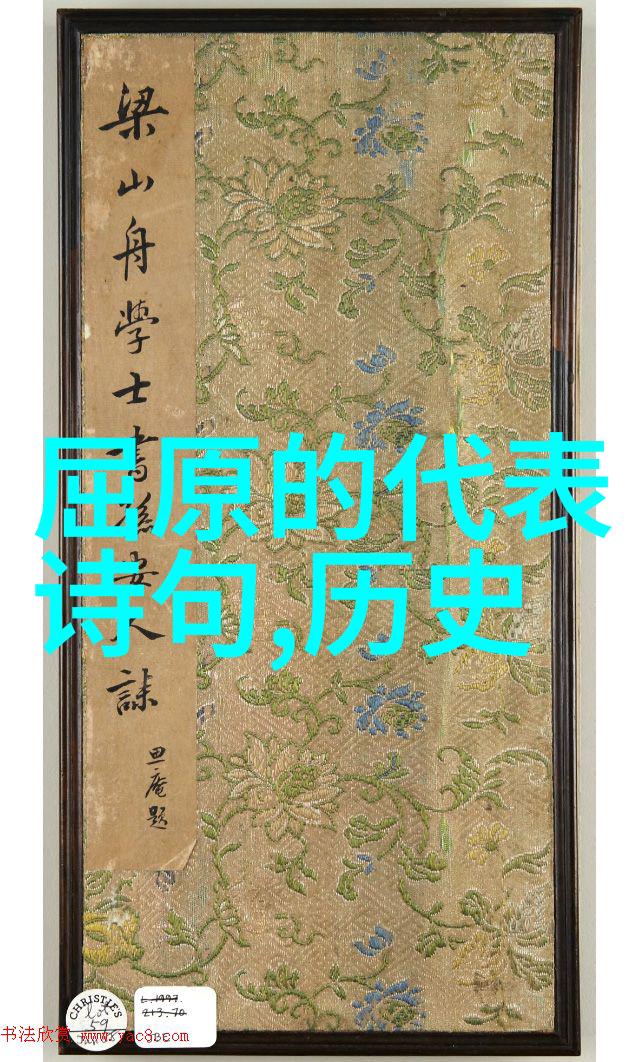 梁山舟學士書孫安人誄
庵題
屈原的代表
诗句,历史
CHRISTIE'S
lot
59
L.1997.
213.70
书法欣赏 www.yac8.com